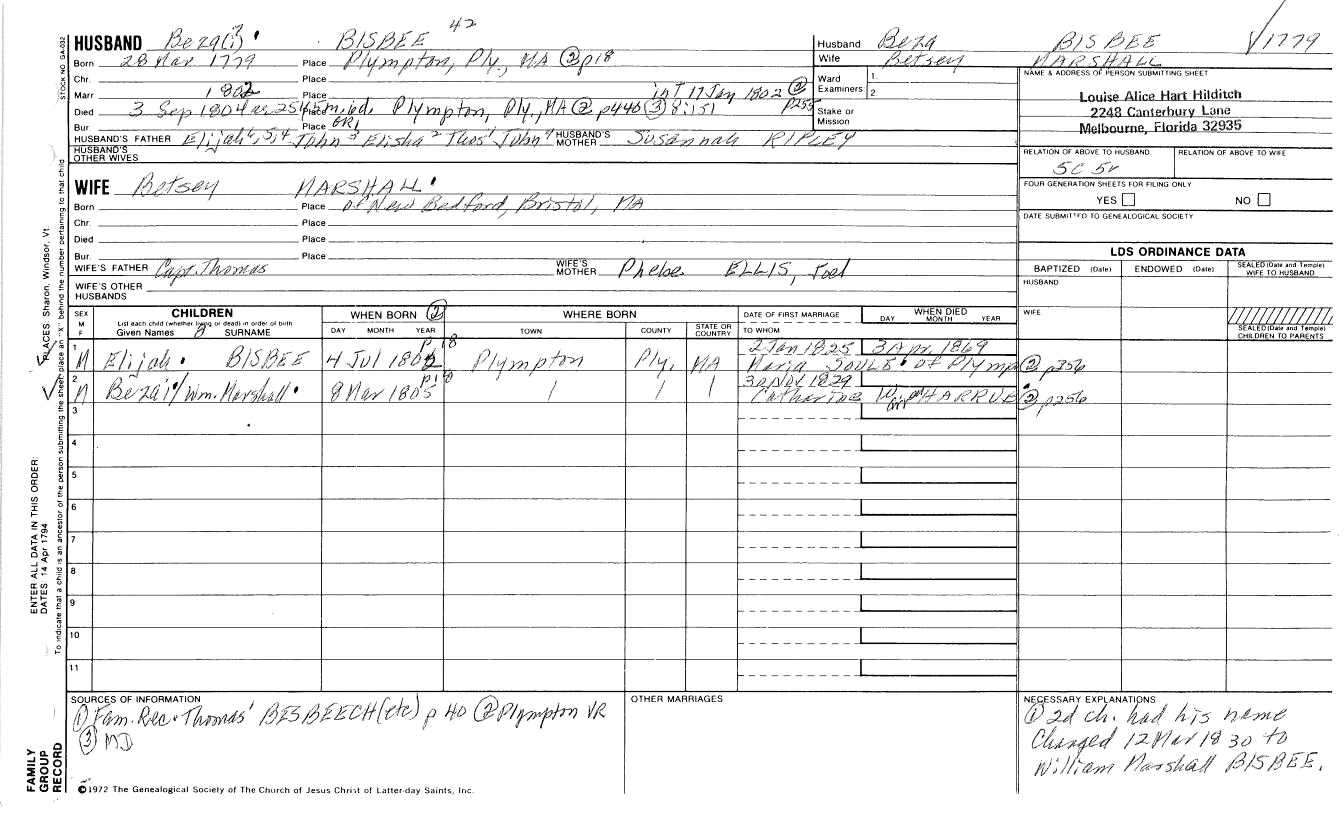 42
HUSBAND Beza(i) ? BISBEE
Born 28 Mar 1779 Place Plympton, Ply., MA ② p18
Chr. Place
Marr 1802 Place int 17 Jan 1802 ② p255
Died 3 Sep 1804 Place Plympton, Ply., MA ② p440 ③ 8:151
Bur. Place GR1
HUSBAND'S FATHER Elijah John Elisha Thos John HUSBAND'S MOTHER Susannah RIPLEY
HUSBAND'S OTHER WIVES
WIFE Betsey MARSHALL
Born Place of New Bedford, Bristol, MA
Chr. Place
Died Place
Bur. Place
WIFE'S FATHER Capt. Thomas WIFE'S MOTHER Phebe ELLIS, Joel
WIFE'S OTHER HUSBANDS
Husband Beza BISBEE 1779
Wife Betsey MARSHALL
Ward 1.
Examiners 2.
Stake or Mission
NAME & ADDRESS OF PERSON SUBMITTING SHEET
Louise Alice Hart Hilditch
2248 Canterbury Lane
Melbourne, Florida 32935
RELATION OF ABOVE TO HUSBAND RELATION OF ABOVE TO WIFE
5C 5r
FOUR GENERATION SHEETS FOR FILING ONLY
YES NO
DATE SUBMITTED TO GENEALOGICAL SOCIETY
LDS ORDINANCE DATA
BAPTIZED (Date) ENDOWED (Date) SEALED (Date and Temple) WIFE TO HUSBAND
HUSBAND
WIFE
SEALED (Date and Temple) CHILDREN TO PARENTS
SEX M F CHILDREN WHEN BORN ② WHERE BORN DATE OF FIRST MARRIAGE WHEN DIED
List each child (whether living or dead) in order of birth
Given Names SURNAME DAY MONTH YEAR TOWN COUNTY STATE OR COUNTRY TO WHOM DAY MONTH YEAR
p18 2 Jan 1825 3 Apr 1869
1 M Elijah BISBEE 4 Jul 1802 Plympton Ply. MA Maria SOULE of Plymp ② p256
30 Nov 1829
2 M Bezai/Wm. Marshall 8 Mar 1805 Catharine ② p256
3
4
5
6
7
8
9
10
11
SOURCES OF INFORMATION
① Fam. Rec. Thomas' BESBEECH (etc) p 40 ② Plympton VR
③ MD
OTHER MARRIAGES
NECESSARY EXPLANATIONS
① 2d ch. had his name
Changed 12 Mar 1830 to
William Marshall BISBEE.
©1972 The Genealogical Society of The Church of Jesus Christ of Latter-day Saints, Inc.
FAMILY GROUP RECORD
ENTER ALL DATA IN THIS ORDER:
DATES 14 Apr 1794
PLACES: Sharon, Windsor, Vt.
To indicate that a child is an ancestor of the person submitting the sheet, place an "X" behind the number pertaining to that child.
STOCK NO. GA-032